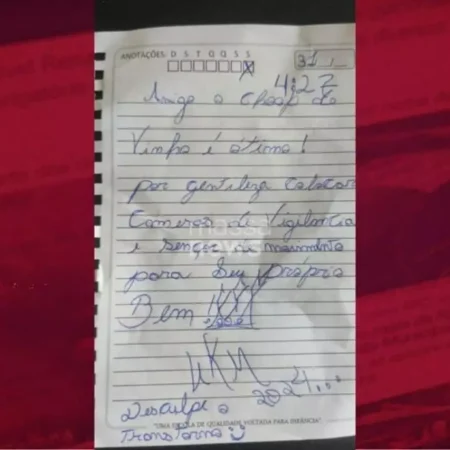 ANOTAÇÕES: D S T Q Q S S
31
4:27
Amigo a
Vinho é ótimo!
por gentileza colocar
Cameras de Vigilancia
e sensor de movimento
para Seu próprio
Bem
2024...
Desculpe o
"UMA ESCOLA DE QUALIDADE VOLTADA PARA INFÂNCIA"
Transtorno